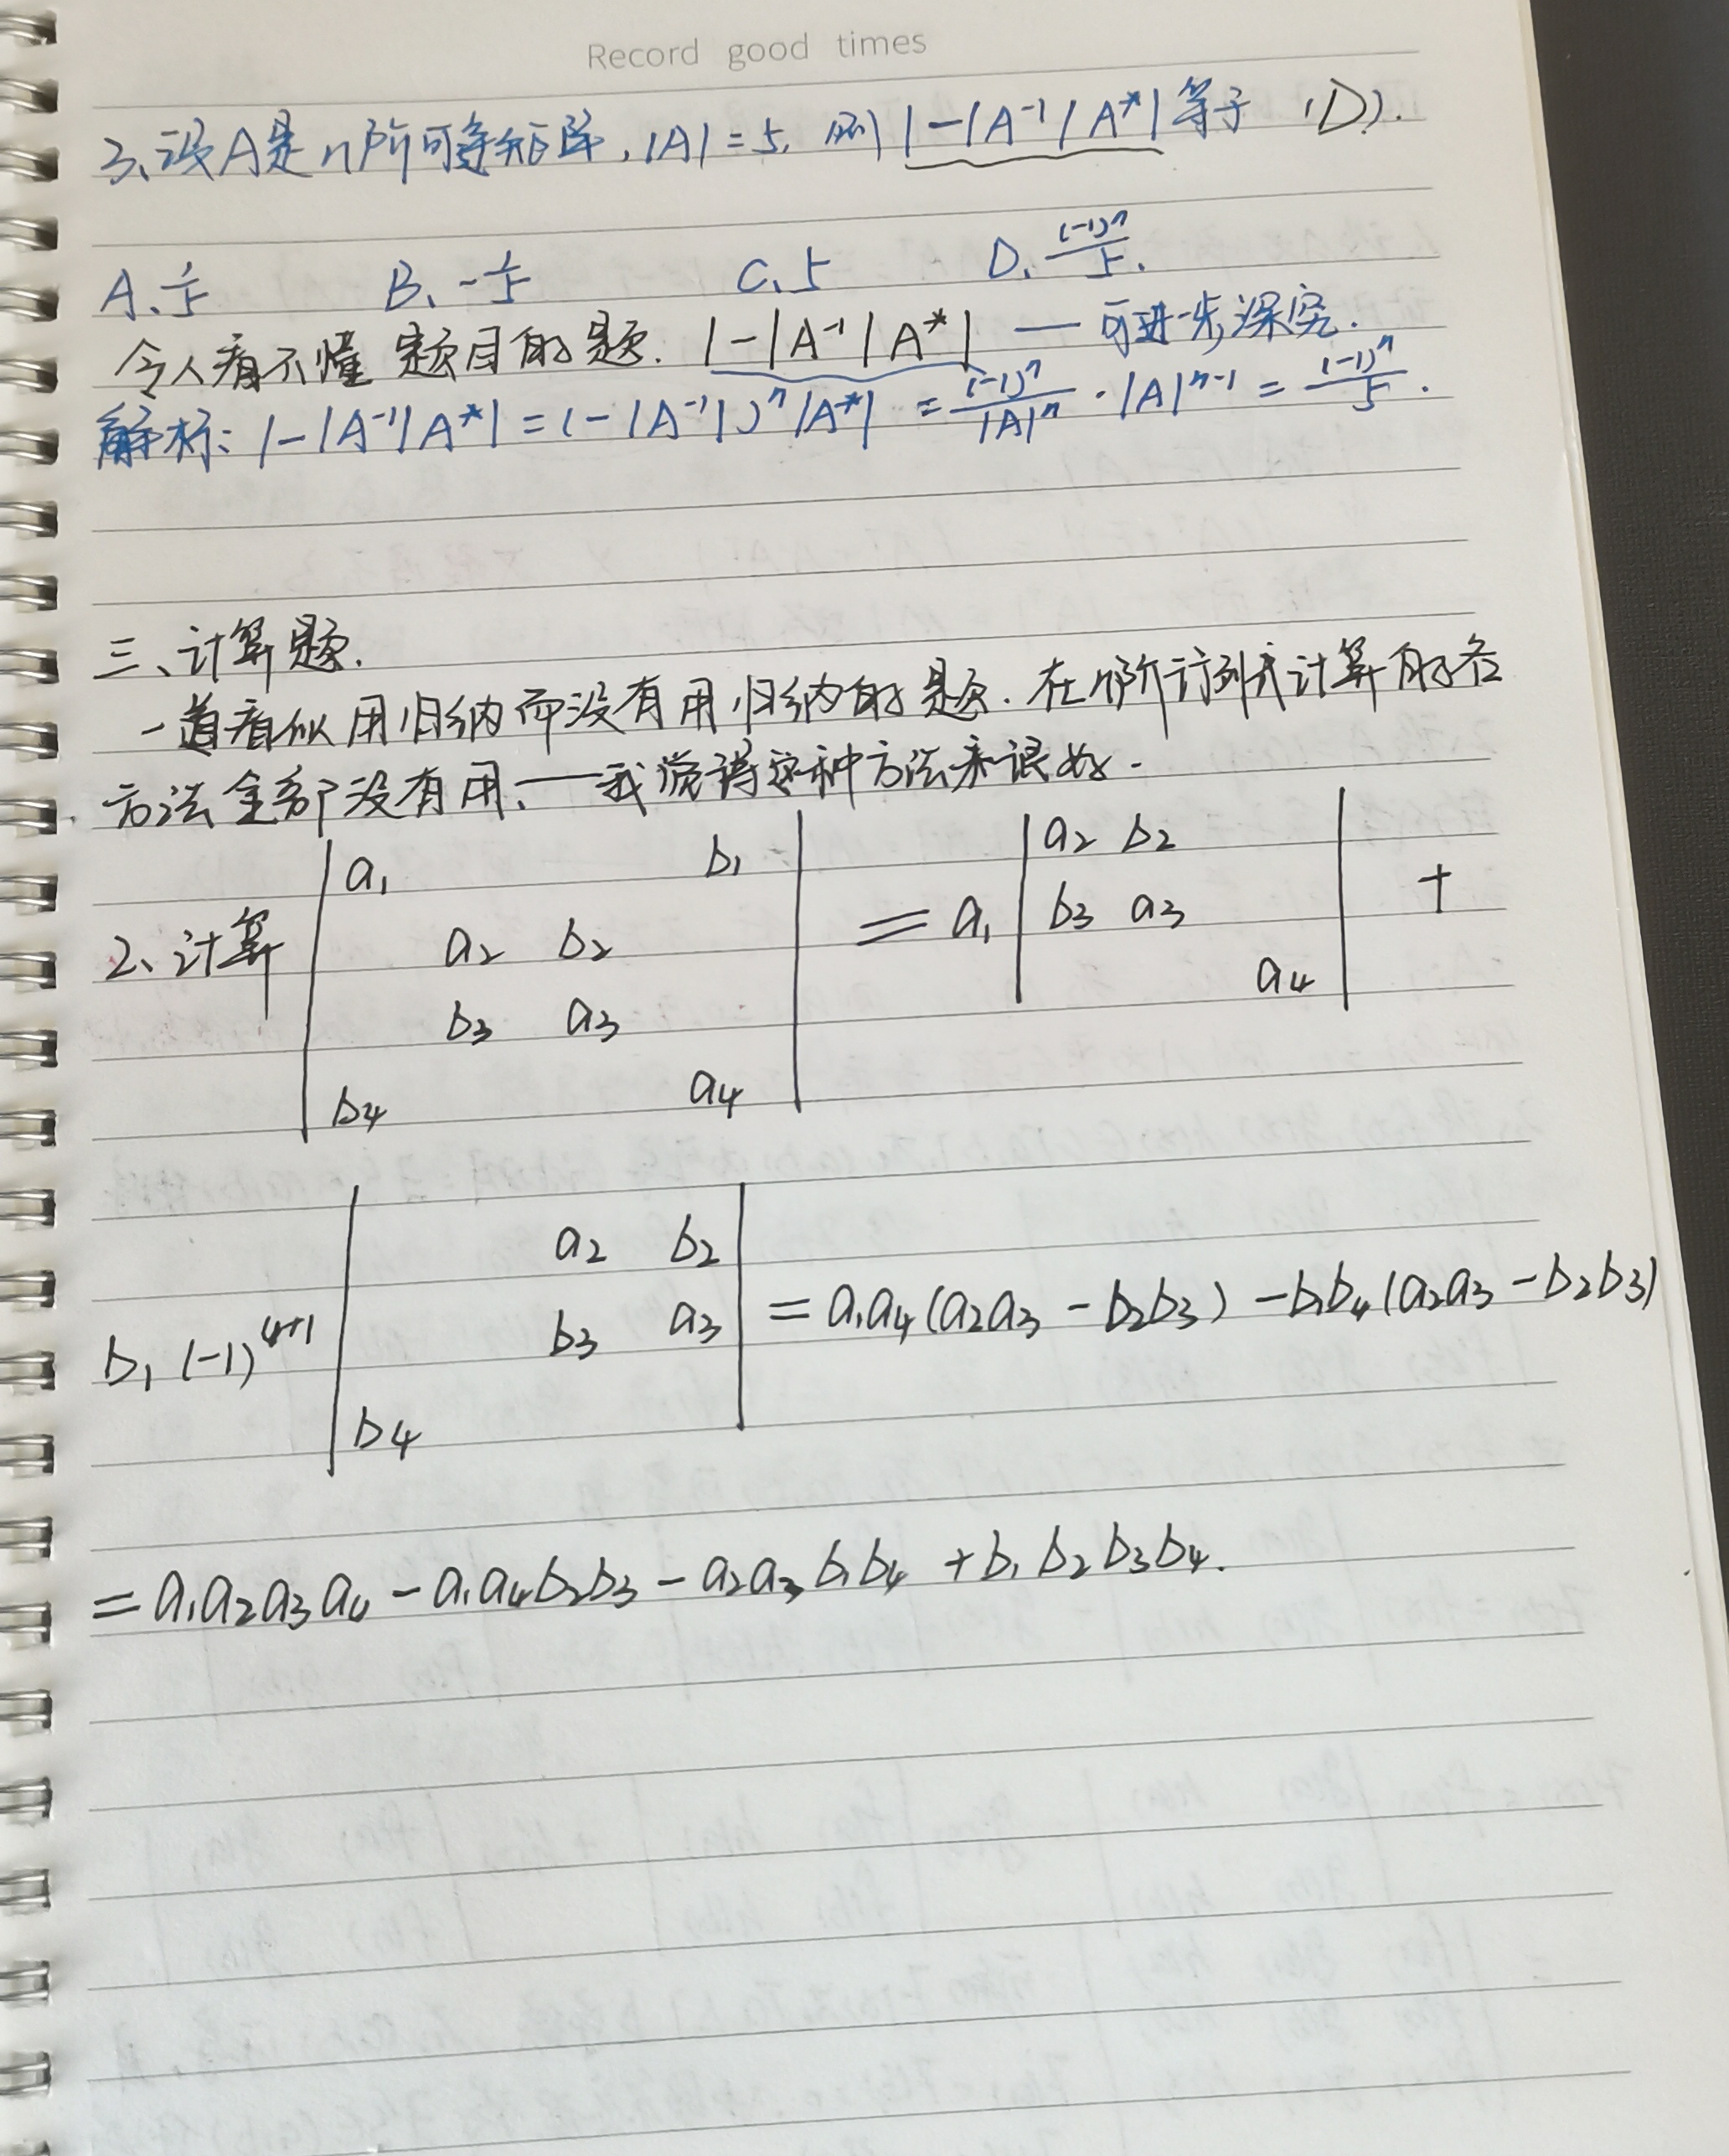 Record good times
3、设A是n阶可逆矩阵,|A|=5,则|-|A⁻¹|A*|等于 (D).
A、1/5 B、-1/5 C、5 D、(-1)ⁿ/5.
令人看不懂题目的题. |-|A⁻¹|A*| — 可进一步深究.
解析: |-|A⁻¹|A*| = (-|A⁻¹|)ⁿ|A*| = (-1)ⁿ/|A|ⁿ · |A|ⁿ⁻¹ = (-1)ⁿ/5.
三、计算题.
一道看似用归纳而没有用归纳的题.在n阶行列式计算的各
方法全部没有用.——我觉得这种方法来很好.
2、计算 | a₁ b₁ | = a₁ | a₂ b₂ | +
| a₂ b₂ | | b₃ a₃ |
| b₃ a₃ | | a₄ |
| b₄ a₄ |
| a₂ b₂ |
b₁(-1)⁴⁺¹ | b₃ a₃ | = a₁a₄(a₂a₃ - b₂b₃) - b₁b₄(a₂a₃ - b₂b₃)
| b₄ |
= a₁a₂a₃a₄ - a₁a₄b₂b₃ - a₂a₃b₁b₄ + b₁b₂b₃b₄.